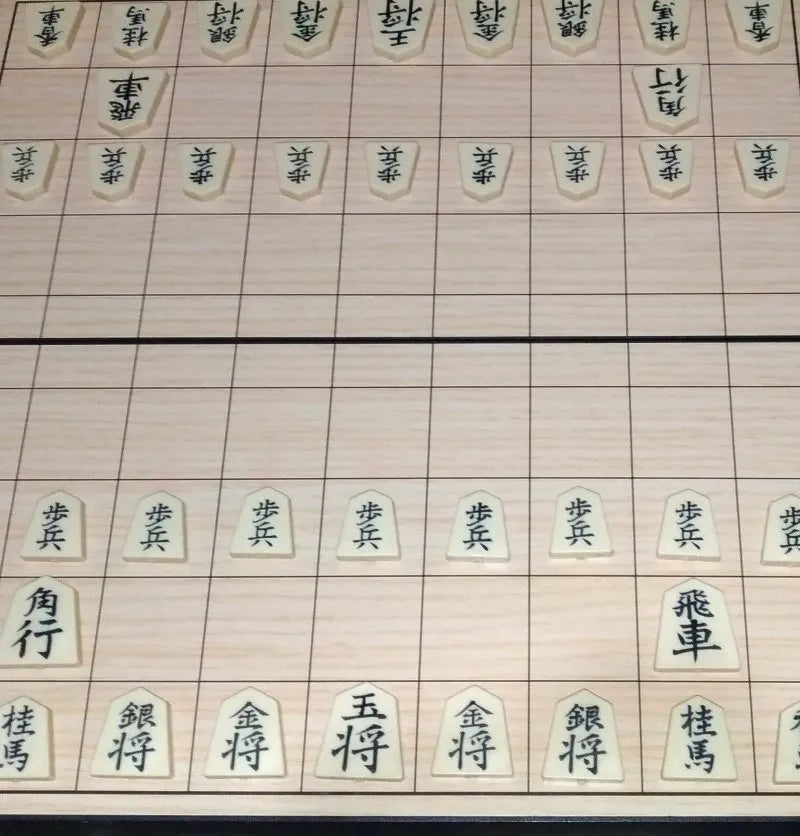 香車 桂馬 銀将 金将 王将 金将 銀将 桂馬 香車
飛車 角行
歩兵 歩兵 歩兵 歩兵 歩兵 歩兵 歩兵 歩兵 歩兵
歩兵 歩兵 歩兵 歩兵 歩兵 歩兵 歩兵 歩兵
角行 飛車
桂馬 銀将 金将 玉将 金将 銀将 桂馬